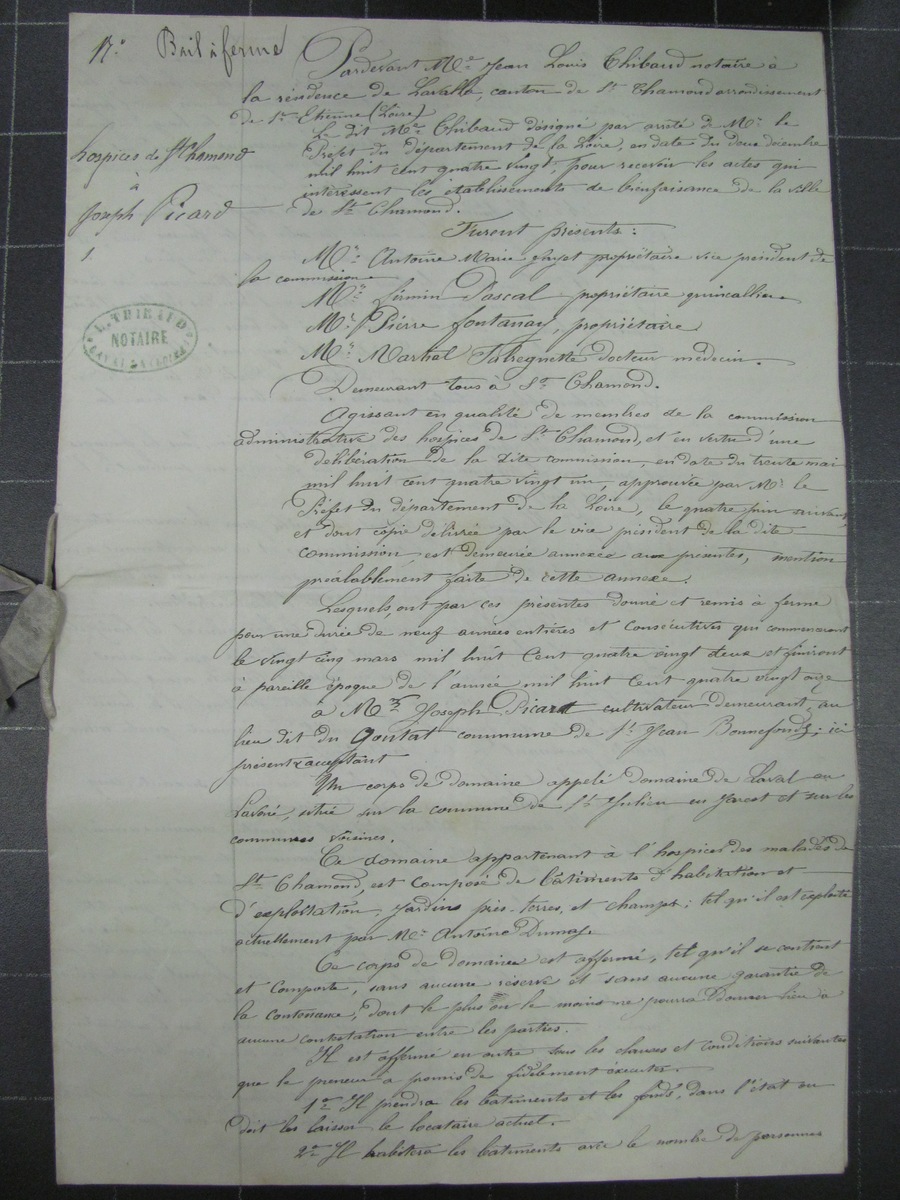 N° Bail à ferme
hospices de St Chamond
à
Joseph Picard
1
L. THIBAUD
NOTAIRE
Pardevant Me Jean Louis Thibaud notaire à
la résidence de Lavalla, canton de St Chamond arrondissement
de St Etienne (Loire)
Le dit Me Thibaud désigné par arrêté de Mr le
Préfet du département de la Loire, en date du deux décembre
mil huit cent quatre vingt, pour recevoir les actes qui
intéressent les établissements de bienfaisance de la ville
de St Chamond.
Furent présents :
Mr Antoine Marie propriétaire vice président de
la commission
Mr Firmin Pascal propriétaire quincallier
Mr Pierre fontanay, propriétaire
Mr Martial docteur médecin.
Demeurant tous à St Chamond.
Agissant en qualité de membres de la commission
administrative des hospices de St Chamond, et en vertu d'une
délibération de la dite commission, en date du trente mai
mil huit cent quatre vingt un, approuvée par Mr le
Préfet du département de la Loire, le quatre juin suivant,
et dont copie délivrée par le vice président de la dite
commission, est demeurée annexée aux présentes, mention
préalablement faite de cette annexe.
Lesquels, ont par ces présentes donné et remis à ferme
pour une durée de neuf années entières et consécutives qui commenceront
le vingt cinq mars mil huit cent quatre vingt deux et finiront
à pareille époque de l'année mil huit cent quatre vingt onze
à Mr Joseph Picard cultivateur demeurant, au
lieu dit du Goutat commune de St Jean Bonnefonds, ici
présent & acceptant
Un corps de domaine appelé domaine de Laval ou
Lavoré, situé sur la commune de St Julien en Jarest et sur les
communes voisines.
Ce domaine appartenant à l'hospice des malades de
St Chamond, est composé de bâtiments d'habitation et
d'exploitation, jardins prés, terres, et champs ; tel qu'il est exploité
actuellement par Mr Antoine Dumas.
Ce corps de domaine est affermé, tel qu'il se contient
et comporte, sans aucune réserve et sans aucune garantie de
la contenance, dont le plus ou le moins ne pourra donner lieu à
aucune contestation entre les parties.
Il est affermé en outre sous les clauses et conditions suivantes
que le preneur a promis de fidèlement exécuter.
1° Il prendra les bâtiments et les fonds, dans l'état ou
doit les laisser le locataire actuel.
2° Il habitera les bâtiments avec le nombre de personnes